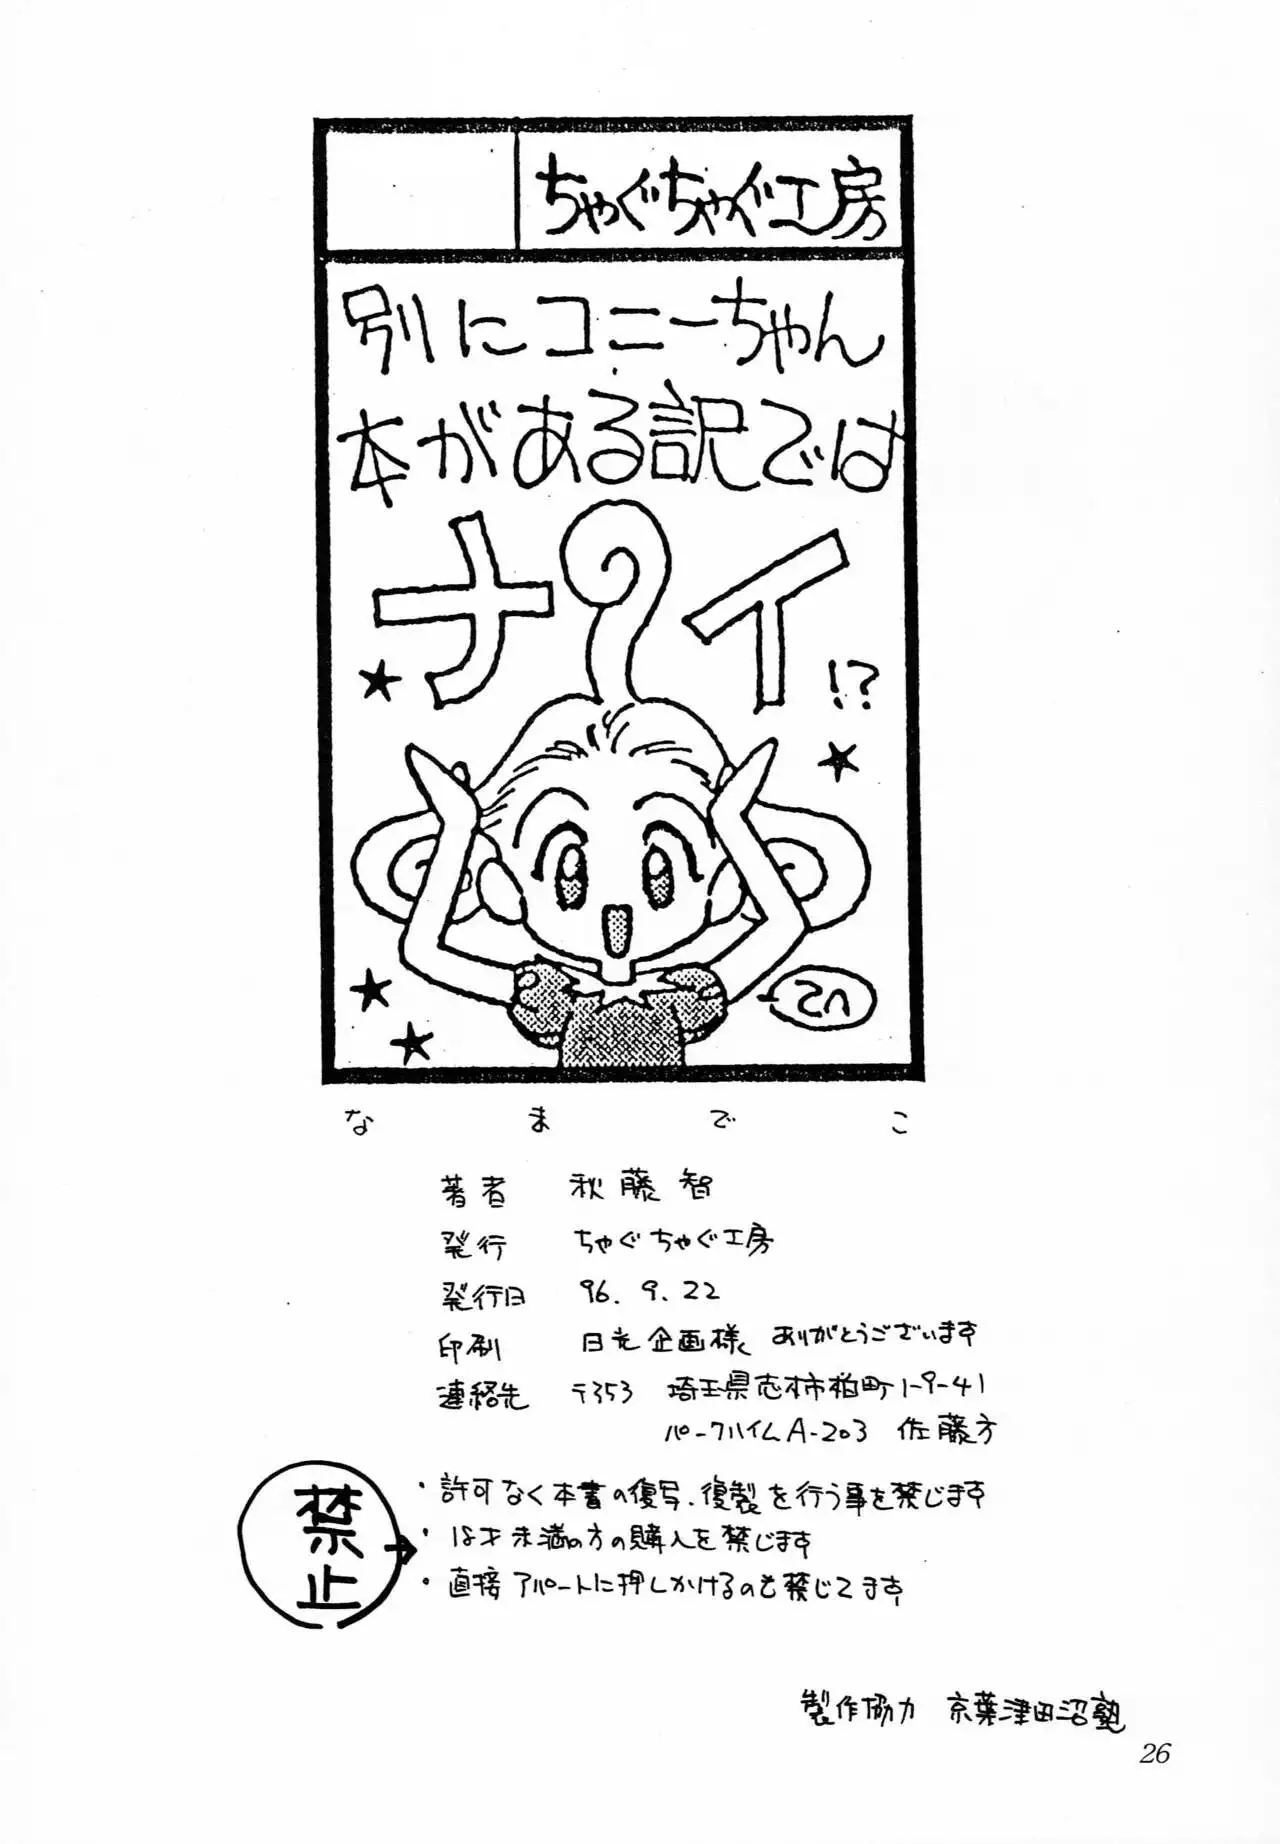 ちゃぐちゃぐ工房
別にコニーちゃん
本がある訳では
ナイ!?
なまでこ
著者 秋藤智
発行 ちゃぐちゃぐ工房
発行日 96.9.22
印刷 日光企画様 ありがとうございます
連絡先 〒353 埼玉県志木市柏町1-9-41
パークハイムA-203 佐藤方
禁止
・許可なく本書の複写、複製を行う事を禁じます
・18才未満の方の購入を禁じます
・直接アパートに押しかけるのも禁じてます
製作協力 京葉津田沼塾
26